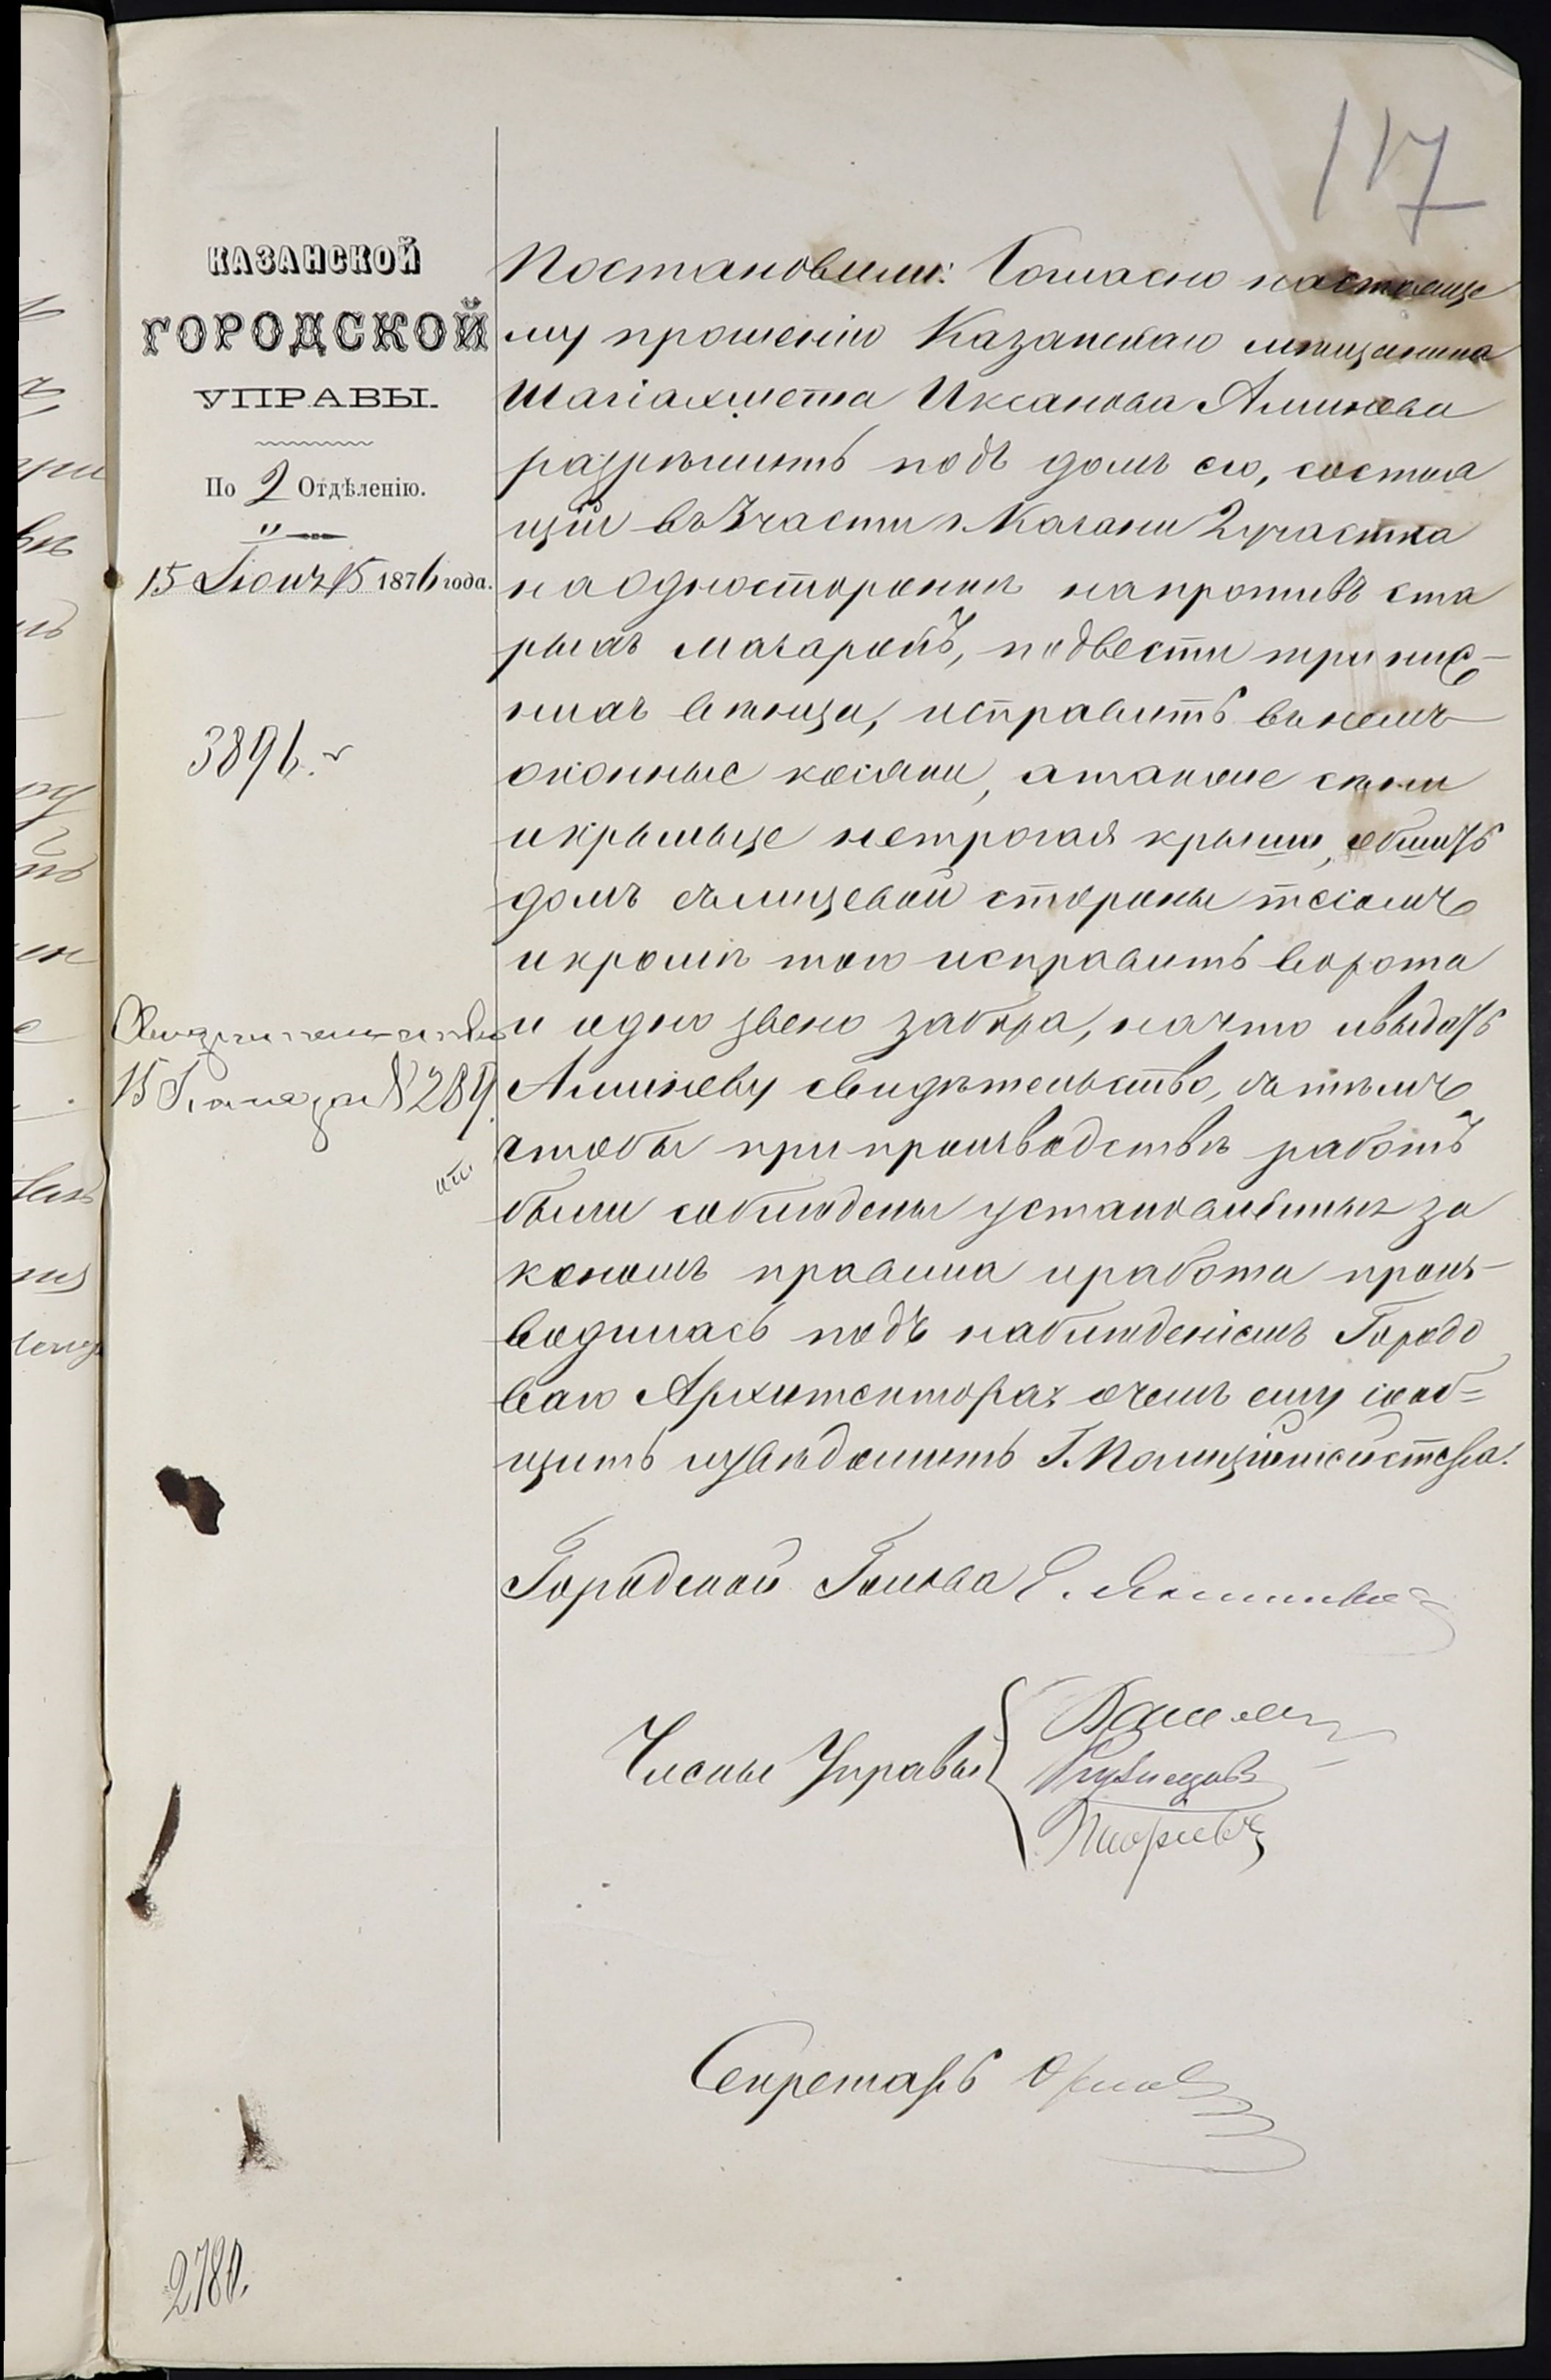 117
КАЗАНСКОЙ
ГОРОДСКОЙ
УПРАВЫ.
По 2 Отдѣленію.
15 Іюня 1876 года.
3896.
Постановили: Согласно настояще
му прошенію Казанскаго мѣщанина
Шагіахмета Иксанова Аминева
разрѣшить подъ домъ его, состоя
щій въ 3 части г. Казани 2 участка
на одностороння напротивъ ста
рыхъ мачаровъ, подвести три ниж-
нихъ вѣнца, исправить въ немъ
оконные косяки, а также сѣни
и крыльце нетрогая крыши, обшить
домъ съ лицевой стороны тесомъ
и кромѣ того исправить ворота
и одно звено забора, на что и выдать
Аминеву свидѣтельство, съ тѣмъ
чтобы при производствѣ работъ
были соблюдены установленныя за
кономъ правила и работа произ-
водилась подъ наблюденіемъ Городо
ваго Архитектора о чемъ ему сооб=
щить и увѣдомить Г. Полиціймейстера.
15 № 289.
Городской Голова Е.
Члены Управы
Кузнецовъ
Секретарь
2780.